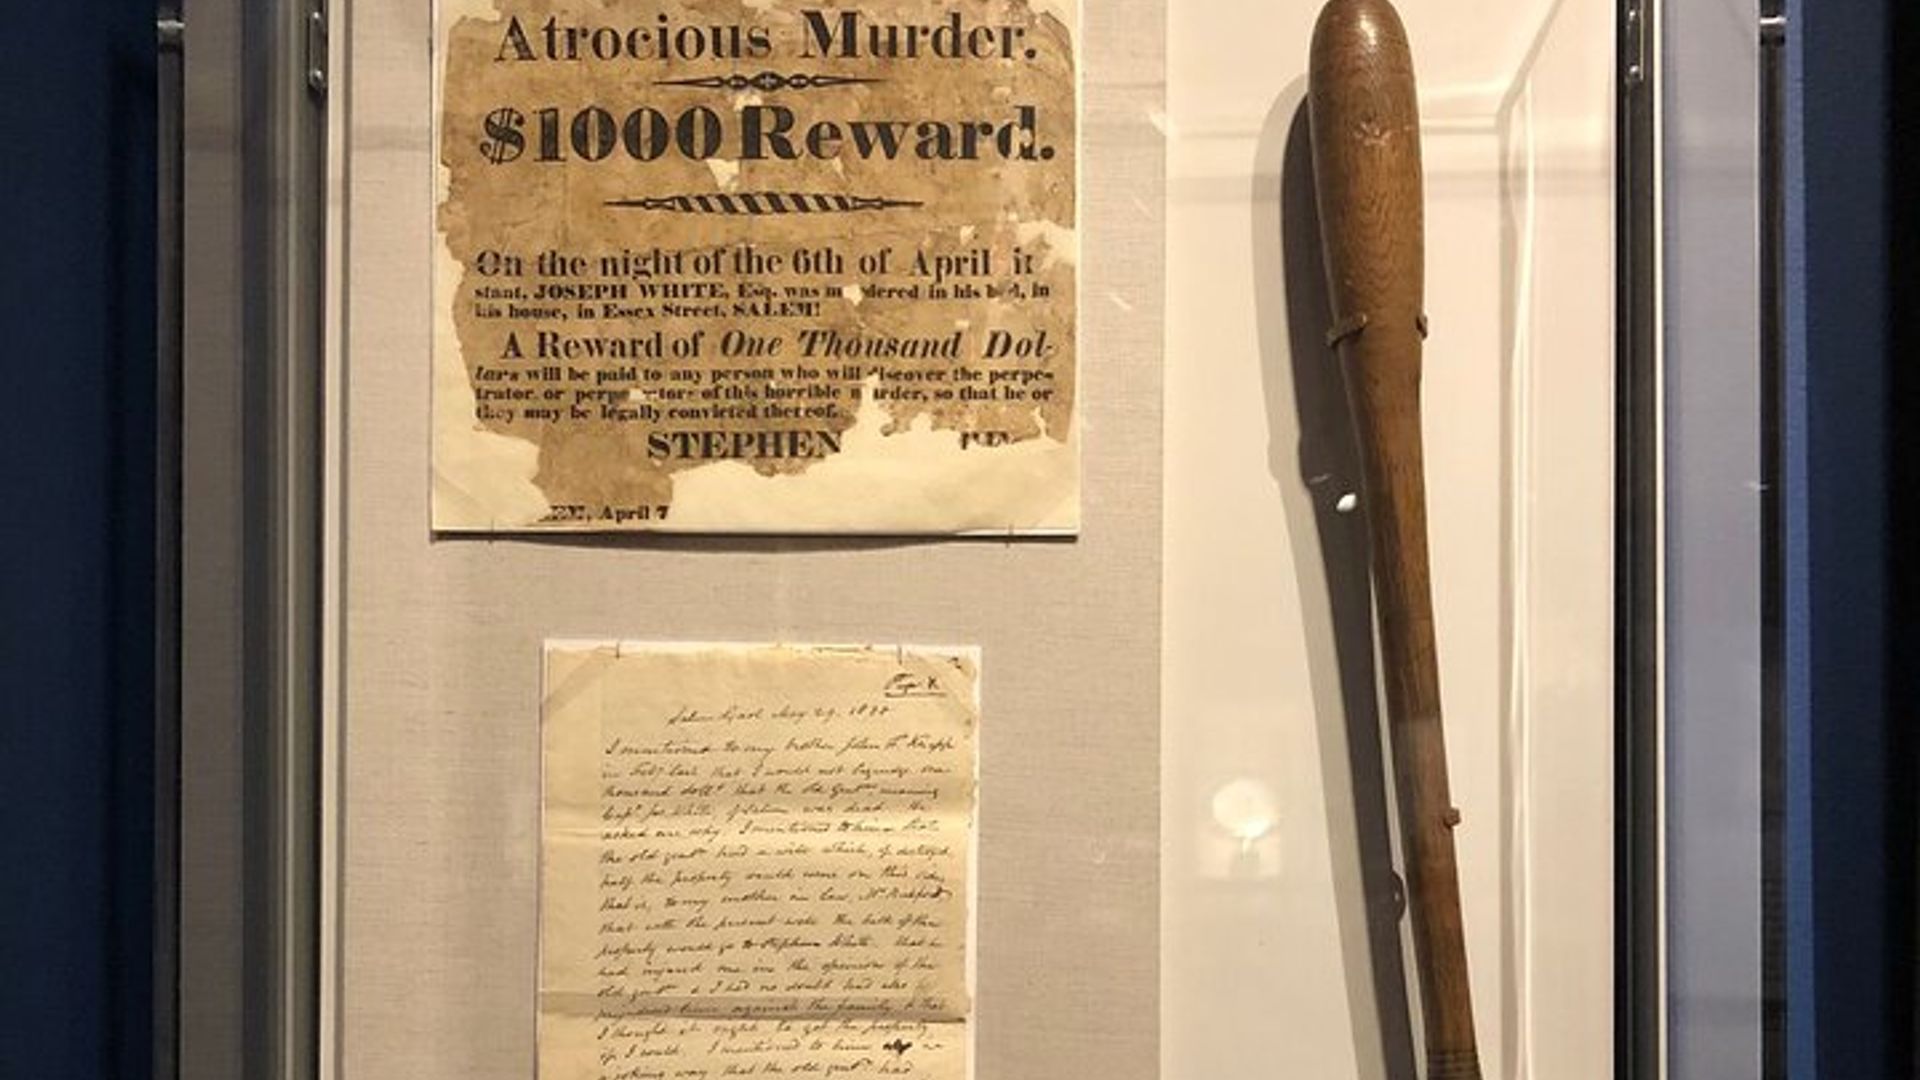 Atrocious Murder.
$1000 Reward.
On the night of the 6th of April in
stant, JOSEPH WHITE, Esq. was murdered in his bed, in
his house, in Essex Street, SALEM!
A Reward of One Thousand Dol-
lars will be paid to any person who will discover the perpe-
trator or perpetrators of this horrible murder, so that he or
they may be legally convicted thereof.
STEPHEN
April 7
Salem Gaol May 29. 1830
I mentioned to my brother John F. Knapp
in Feby last that I would not begrudge one
thousand dolls that the old gentn meaning
Capt Jos. White of Salem was dead. He
asked me why. I mentioned to him that
the old gentn had a will which, if destroyd,
half the property would come on this side,
that is, to my mother in law,
that with the present will the bulk of the
property would go to Stephen White. that he
had injured me in the opinion of the
old gentn & I had no doubt had also
prejudiced him against the family & that
I thought it right to get the property
if I could. I mentioned to him
a joking way that the old gentn had